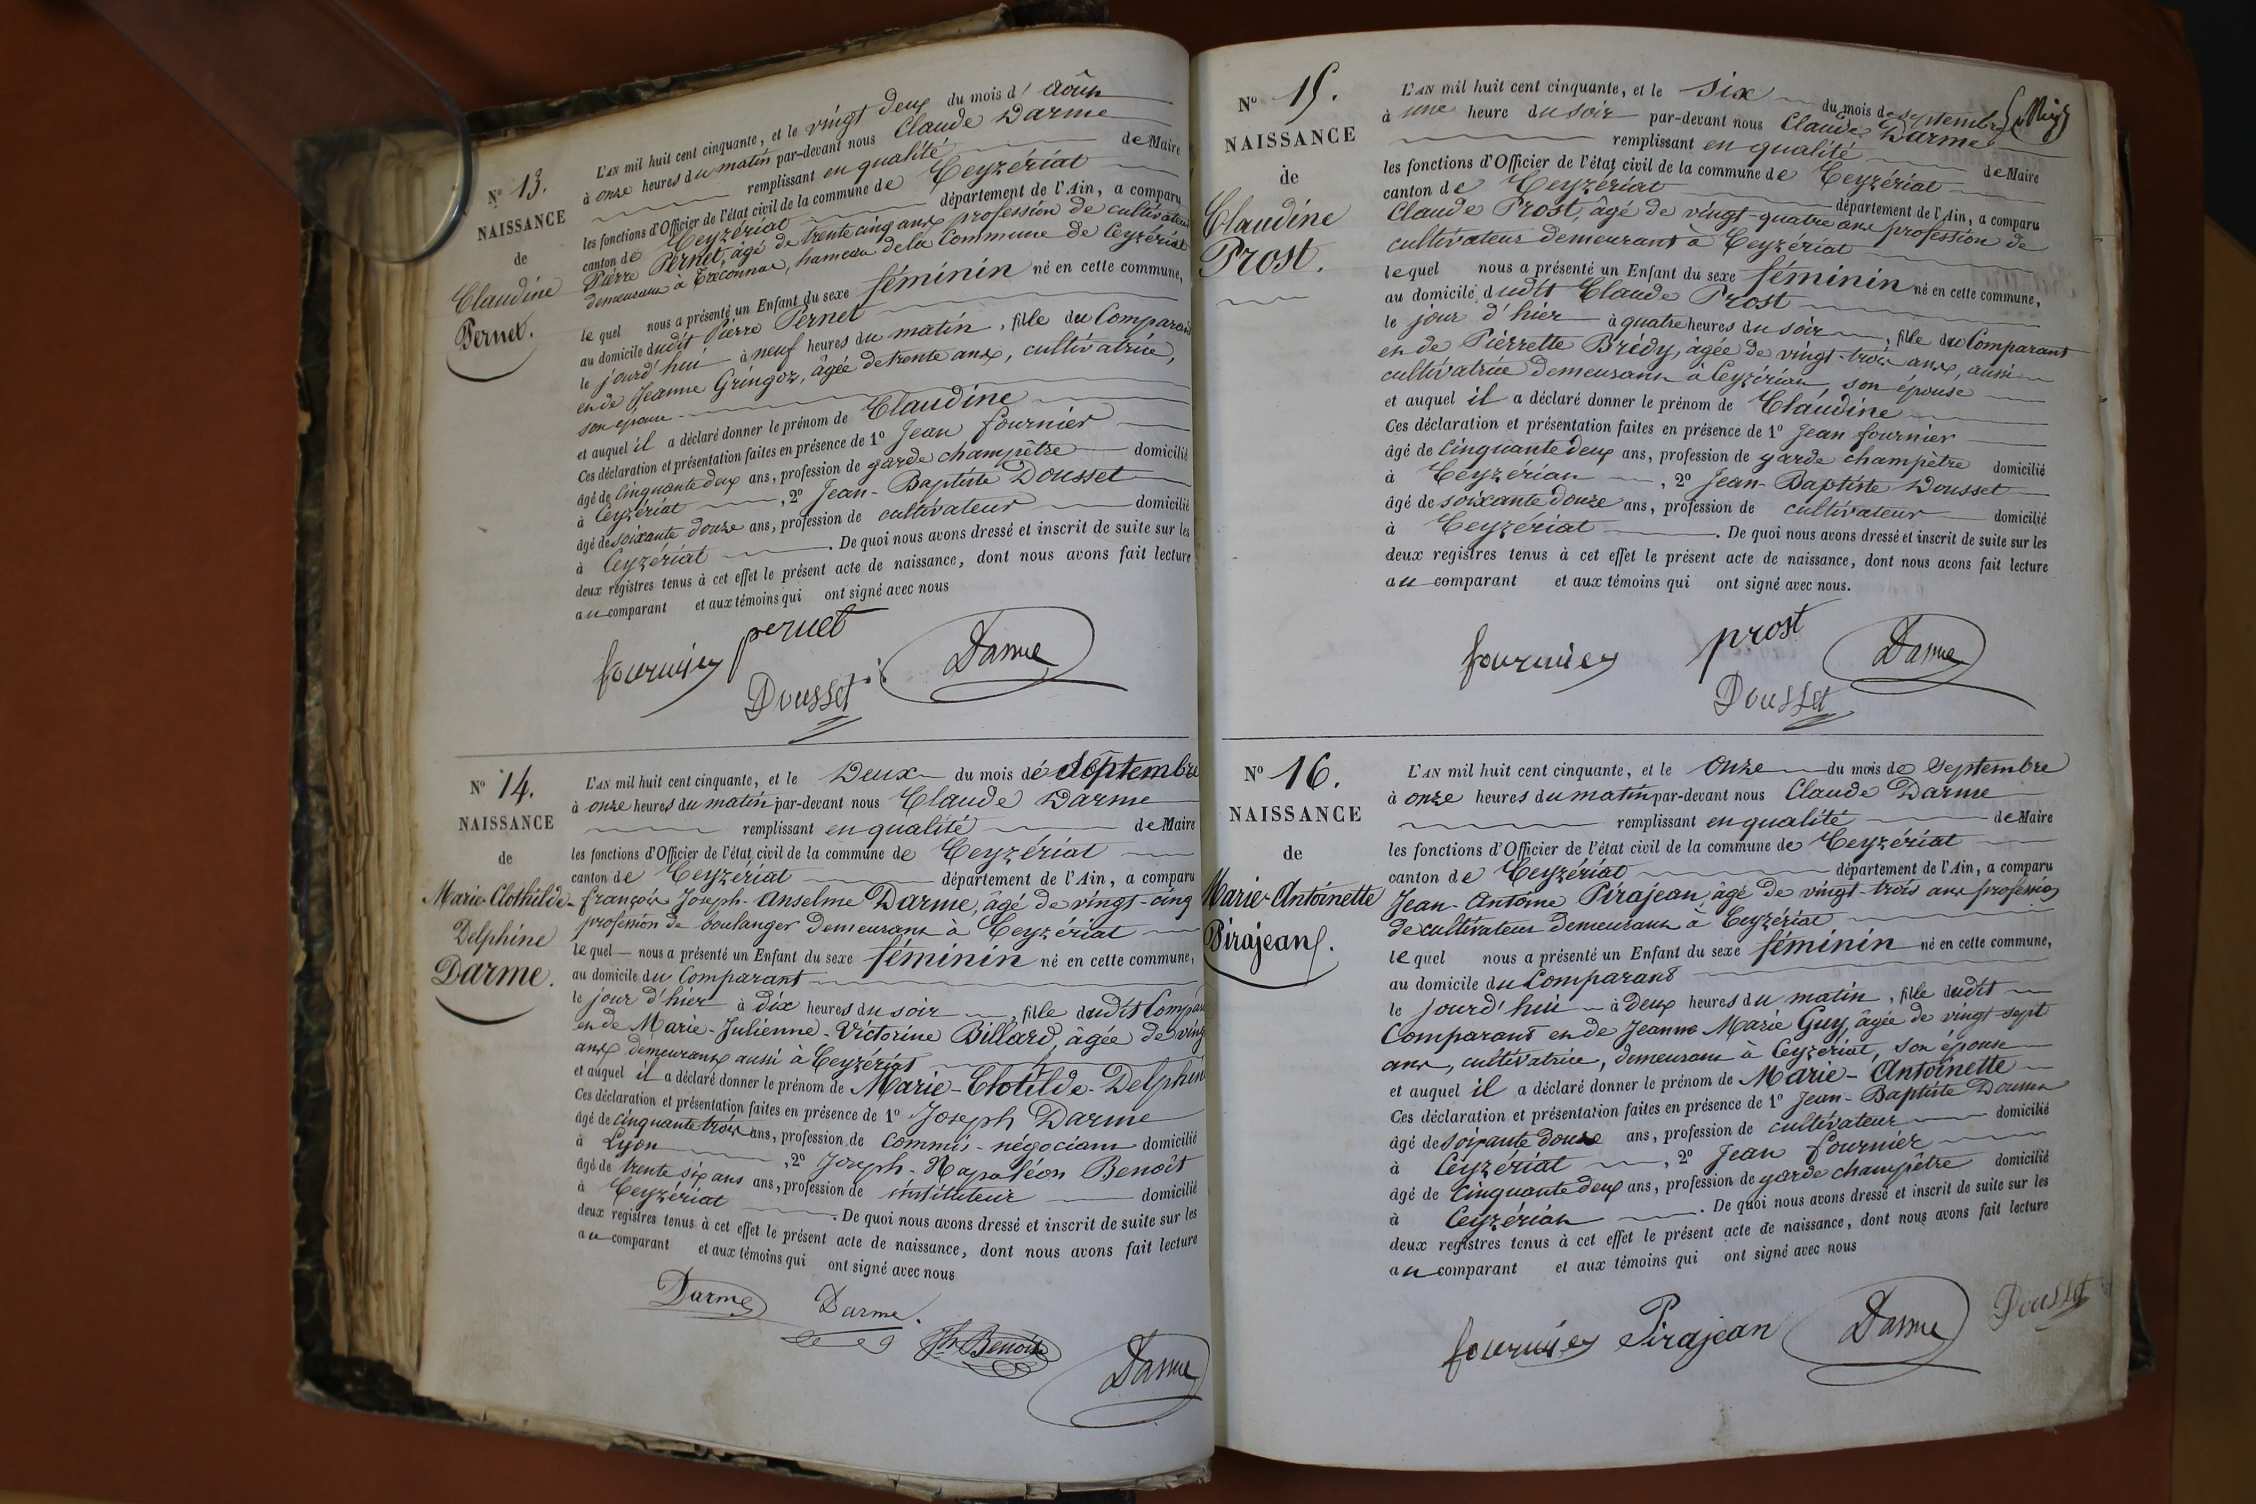 N° 13.
NAISSANCE
de
Claudine
Pernet.
L'AN mil huit cent cinquante, et le vingt deux du mois d' août
à onze heures du matin par-devant nous Claude Darme
remplissant en qualité de Maire
les fonctions d'Officier de l'état civil de la commune de Ceyzériat
canton de Ceyzériat département de l'Ain, a comparu
Pierre Pernet, âgé de trente cinq ans, profession de cultivateur
demeurant à Treconnas, hameau de la Commune de Ceyzériat
le quel nous a présenté un Enfant du sexe féminin né en cette commune,
au domicile dudit Pierre Pernet
le jourd'hui à neuf heures du matin, fille du Comparant
et de Jeanne Gringoz, âgée de trente ans, cultivatrice,
son épouse
et auquel il a déclaré donner le prénom de Claudine
Ces déclaration et présentation faites en présence de 1° Jean fournier
âgé de Cinquante deux ans, profession de garde champêtre domicilié
à Ceyzériat, 2° Jean-Baptiste Dousset
âgé de soixante douze ans, profession de cultivateur domicilié
à Ceyzériat. De quoi nous avons dressé et inscrit de suite sur les
deux registres tenus à cet effet le présent acte de naissance, dont nous avons fait lecture
au comparant et aux témoins qui ont signé avec nous
fournier pernet Darme
Dousset
N° 14.
NAISSANCE
de
Marie-Clothilde-
Delphine
Darme.
L'AN mil huit cent cinquante, et le Deux du mois de Septembre
à onze heures du matin par-devant nous Claude Darme
remplissant en qualité de Maire
les fonctions d'Officier de l'état civil de la commune de Ceyzériat
canton de Ceyzériat département de l'Ain, a comparu
françois Joseph-Anselme Darme, âgé de vingt-cinq
profession de boulanger demeurant à Ceyzériat
le quel nous a présenté un Enfant du sexe féminin né en cette commune,
au domicile du Comparant
le jour d'hier à dix heures du soir, fille dudit Compar
et de Marie-Julienne-Victorine Billard, âgée de ving
ans demeurant aussi à Ceyzériat
et auquel il a déclaré donner le prénom de Marie-Clotilde-Delphin
Ces déclaration et présentation faites en présence de 1° Joseph Darme
âgé de Cinquante trois ans, profession de Commis-négociant domicilié
à Lyon, 2° Joseph-Napoléon Benoît
âgé de trente six ans ans, profession de instituteur domicilié
à Ceyzériat. De quoi nous avons dressé et inscrit de suite sur les
deux registres tenus à cet effet le présent acte de naissance, dont nous avons fait lecture
au comparant et aux témoins qui ont signé avec nous
Darme Darme.
Jh Benoît
Darme
N° 15.
NAISSANCE
de
Claudine
Prost.
L'AN mil huit cent cinquante, et le six du mois de septembre
à une heure du soir par-devant nous Claude Darme
remplissant en qualité de Maire
les fonctions d'Officier de l'état civil de la commune de Ceyzériat
canton de Ceyzériat département de l'Ain, a comparu
Claude Prost, âgé de vingt-quatre ans profession de
cultivateur demeurant à Ceyzériat
le quel nous a présenté un Enfant du sexe féminin né en cette commune,
au domicile dudit Claude Prost
le jour d'hier à quatre heures du soir, fille du Comparant
et de Pierrette Brédy, âgée de vingt-trois ans, aussi
cultivatrice demeurant à Ceyzériat, son épouse
et auquel il a déclaré donner le prénom de Claudine
Ces déclaration et présentation faites en présence de 1° Jean fournier
âgé de Cinquante deux ans, profession de garde champêtre domicilié
à Ceyzériat, 2° Jean-Baptiste Dousset
âgé de soixante douze ans, profession de cultivateur domicilié
à Ceyzériat. De quoi nous avons dressé et inscrit de suite sur les
deux registres tenus à cet effet le présent acte de naissance, dont nous avons fait lecture
au comparant et aux témoins qui ont signé avec nous.
fournier prost Darme
Dousset
N° 16.
NAISSANCE
de
Marie-Antoinette
Pirajean.
L'AN mil huit cent cinquante, et le onze du mois de Septembre
à onze heures du matin par-devant nous Claude Darme
remplissant en qualité de Maire
les fonctions d'Officier de l'état civil de la commune de Ceyzériat
canton de Ceyzériat département de l'Ain, a comparu
Jean-Antoine Pirajean, âgé de vingt-trois ans profession
de cultivateur demeurant à Ceyzériat
le quel nous a présenté un Enfant du sexe féminin né en cette commune,
au domicile du Comparant
le jourd'hui à deux heures du matin, fille dudit
Comparant et de Jeanne Marie Guy, âgée de vingt-sept
ans, cultivatrice, demeurant à Ceyzériat, son épouse
et auquel il a déclaré donner le prénom de Marie-Antoinette
Ces déclaration et présentation faites en présence de 1° Jean-Baptiste Dousset
âgé de soixante douze ans, profession de cultivateur domicilié
à Ceyzériat, 2° Jean fournier
âgé de Cinquante deux ans, profession de garde champêtre domicilié
à Ceyzériat. De quoi nous avons dressé et inscrit de suite sur les
deux registres tenus à cet effet le présent acte de naissance, dont nous avons fait lecture
au comparant et aux témoins qui ont signé avec nous
fournier Pirajean Darme Dousset